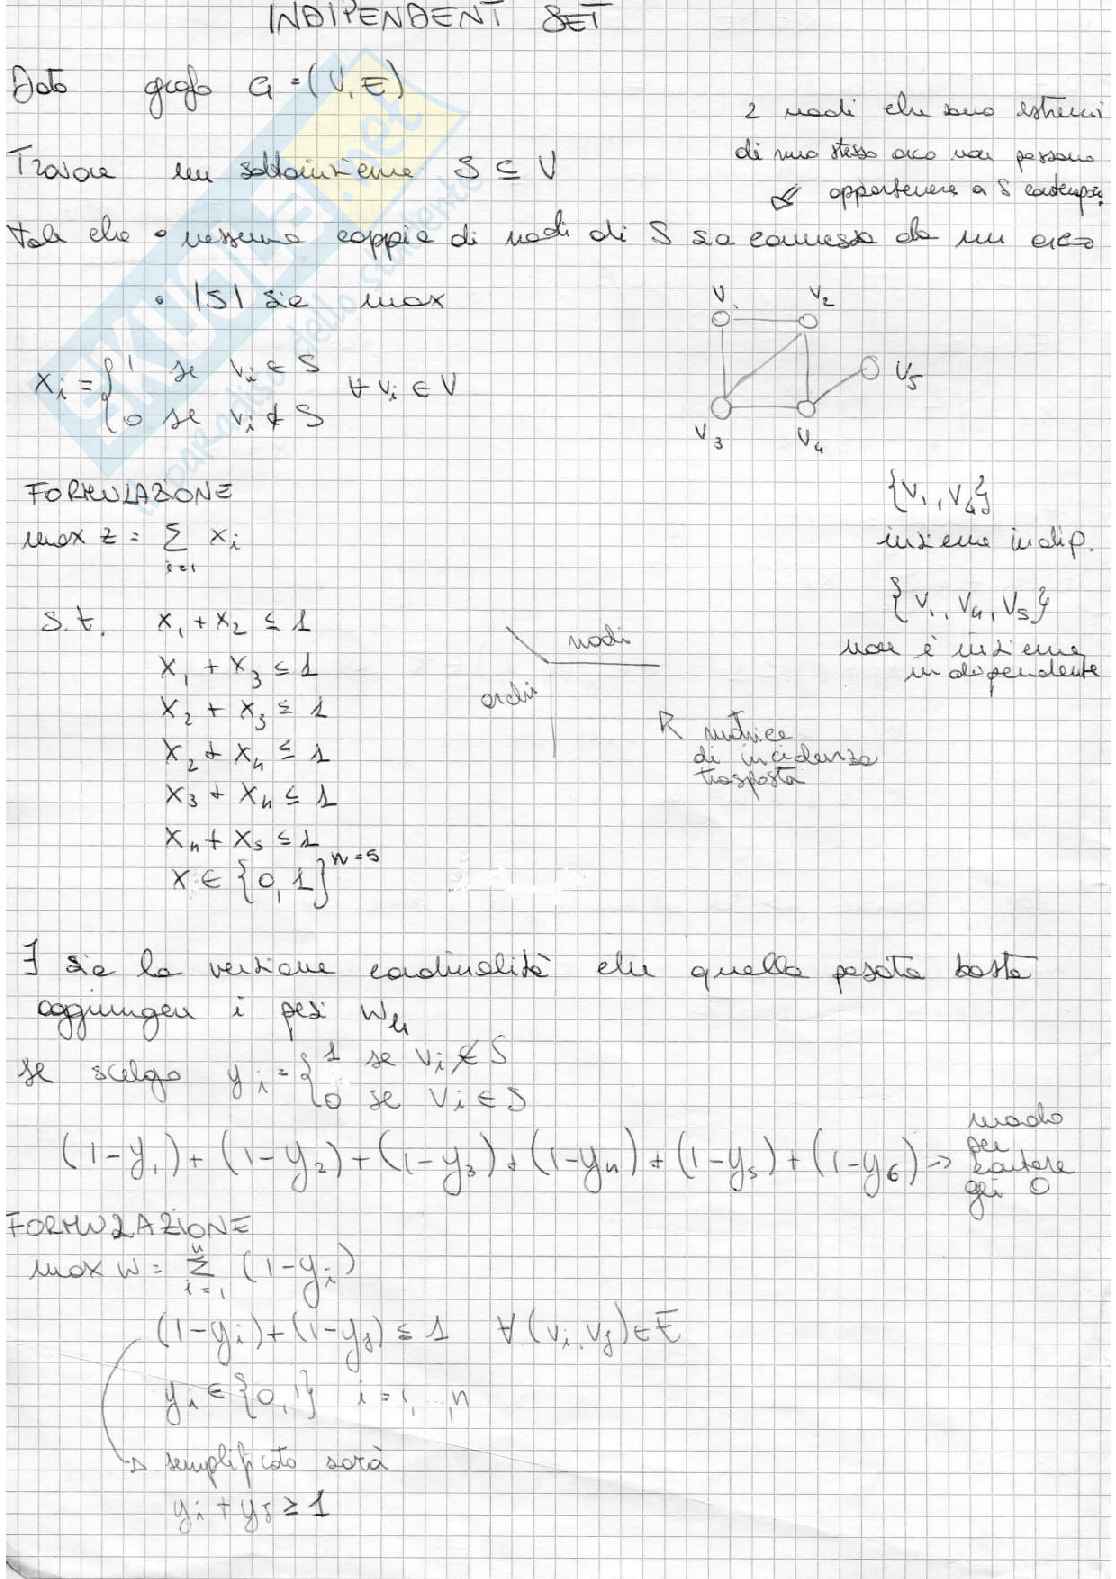 INDIPENDENT SET
Dato grafo G = (V, E)
2 nodi che sono estremi
di uno stesso arco non possono
appartenere a S contemp.
Trovare un sottoinsieme S ⊆ V
tale che • nessuna coppia di nodi di S sia connessa da un arco
• |S| sia max
V₁ V₂
V₅
V₃ V₄
xᵢ = { 1 se vᵢ ∈ S
0 se vᵢ ∉ S ∀ vᵢ ∈ V
FORMULAZIONE
max z = Σ xᵢ
i=1
{V₁, V₄}
insieme indip.
{V₁, V₄, V₅}
non è insieme
indipendente
s.t. x₁ + x₂ ≤ 1
x₁ + x₃ ≤ 1
x₂ + x₃ ≤ 1
x₂ + x₄ ≤ 1
x₃ + x₄ ≤ 1
x₄ + x₅ ≤ 1
x ∈ {0,1}ⁿ⁼⁵
nodi
archi
matrice
di incidenza
trasposta
∃ sia la versione cardinalità che quella pesata basta
aggiungere i pesi
se scelgo yᵢ = { 1 se vᵢ ∉ S
0 se vᵢ ∈ S
(1-y₁) + (1-y₂) + (1-y₃) + (1-y₄) + (1-y₅) + (1-y₆) →
modo
per
contare
gli 0
FORMULAZIONE
max W = Σ (1-yᵢ)
n
i=1
(1-yᵢ) + (1-yⱼ) ≤ 1 ∀ (vᵢ, vⱼ) ∈ E
yᵢ ∈ {0,1} i = 1, ..., n
semplificato sarà
yᵢ + yⱼ ≥ 1
SKUOLA.net
il paradiso dello studente